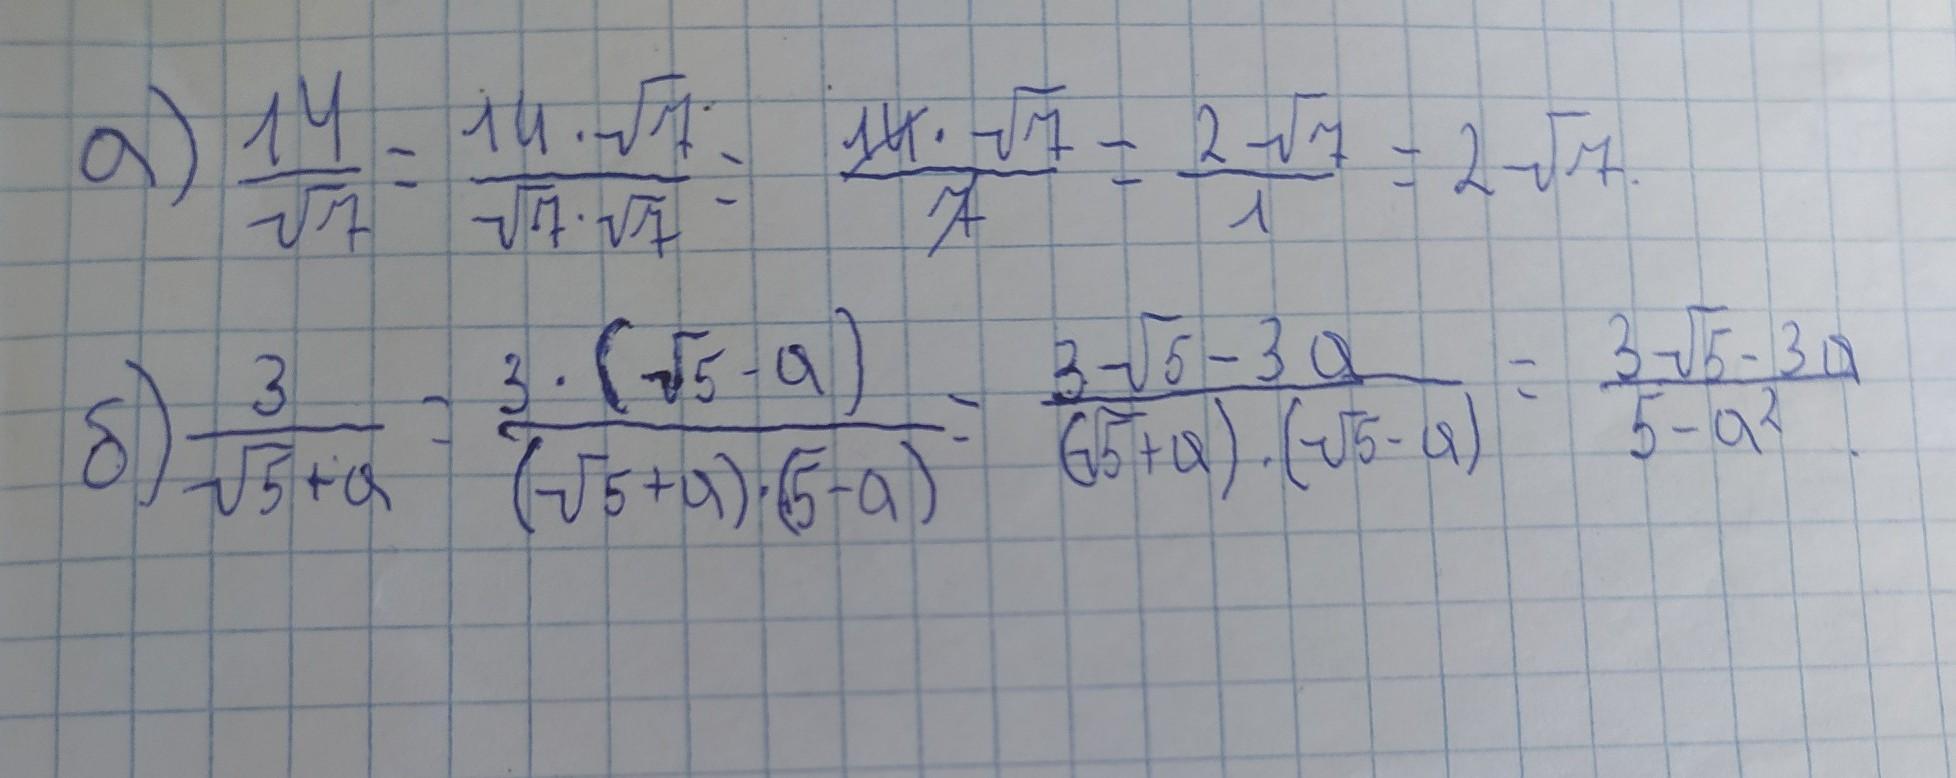 а) 14/√7 = 14·√7/√7·√7 = 14·√7/7 = 2√7/1 = 2√7.
б) 3/√5+a = 3·(√5-a)/(√5+a)·(5-a) = 3√5-3a/(√5+a)·(√5-a) = 3√5-3a/5-a².